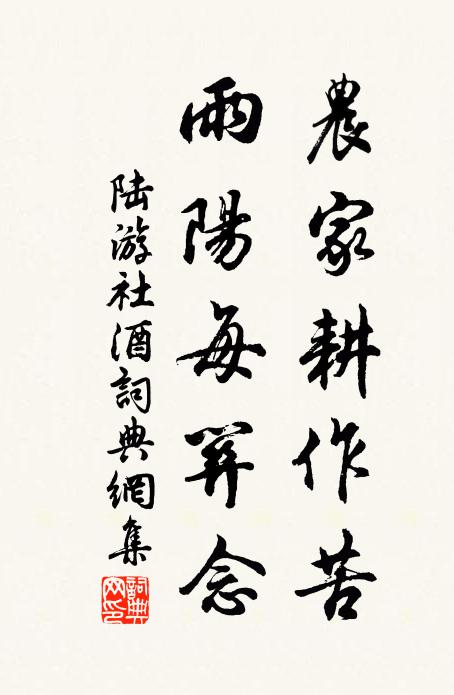 農家耕作苦
雨陽每關念
陆游社酒詞典網集
詞典
网印